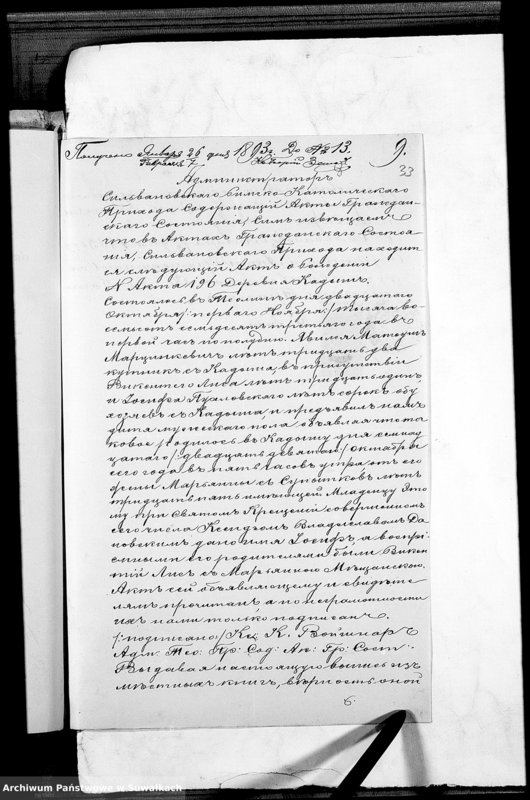 Получено Января 26 дня 1893г. До № 13.
Февраля 7
9.
33
Администраторъ
Сильвановскаго Римско Католическаго
Прихода Содержащій Акты Граждан-
скаго Состоянія, Симъ извѣщаетъ
что въ Актахъ Гражданскаго Состоя-
нія, Сильвановскаго Прихода находит-
ся слѣдующій Актъ о рожденіи
N Акта 196 Деревня Кадышъ.
Состоялось въ Теолинѣ дня двадцатаго
Октября /: перваго Ноября :/ тысяча во-
семьсотъ семьдесятъ третьяго года въ
первой часъ по полудню. Явился Матеушъ
Марцинкевичъ лѣтъ тридцать два
кутникъ съ Кадыша, въ присутствіи
Викентего Лиса лѣтъ тридцать одинъ
и Іосифа лѣтъ сорокъ обу
хозяевъ съ Кадыша, и предъявилъ намъ
дитя мужескаго пола объявляя что та-
ковое родилось въ Кадышу дня семнад
цатаго /: двадцать девятаго :/ Октября
сего года въ пять часовъ утра, отъ его
жены Марьянны съ лѣтъ
тридцать пять имѣющей. Младенцу Это
му при Святомъ Крещеніи совершенномъ
сего числа Ксендзомъ Владиславомъ Да-
новскимъ дано имя Іосифъ, а воспрі-
емными его родителями были Викен-
тій Лисъ съ Марьянною
Актъ сей объявляющему и свидѣте
лямъ прочитанъ, а по неграмотности
ихъ нами только подписанъ.
/: подписано :/ Кс. К. Войшнаръ
Адм: Тео: Пр: Сод: Ак: Гр: Сост.
Выдавая настоящую выпись изъ
мѣстныхъ книгъ, вѣрность оной
6.
Archiwum Państwowe w Suwałkach